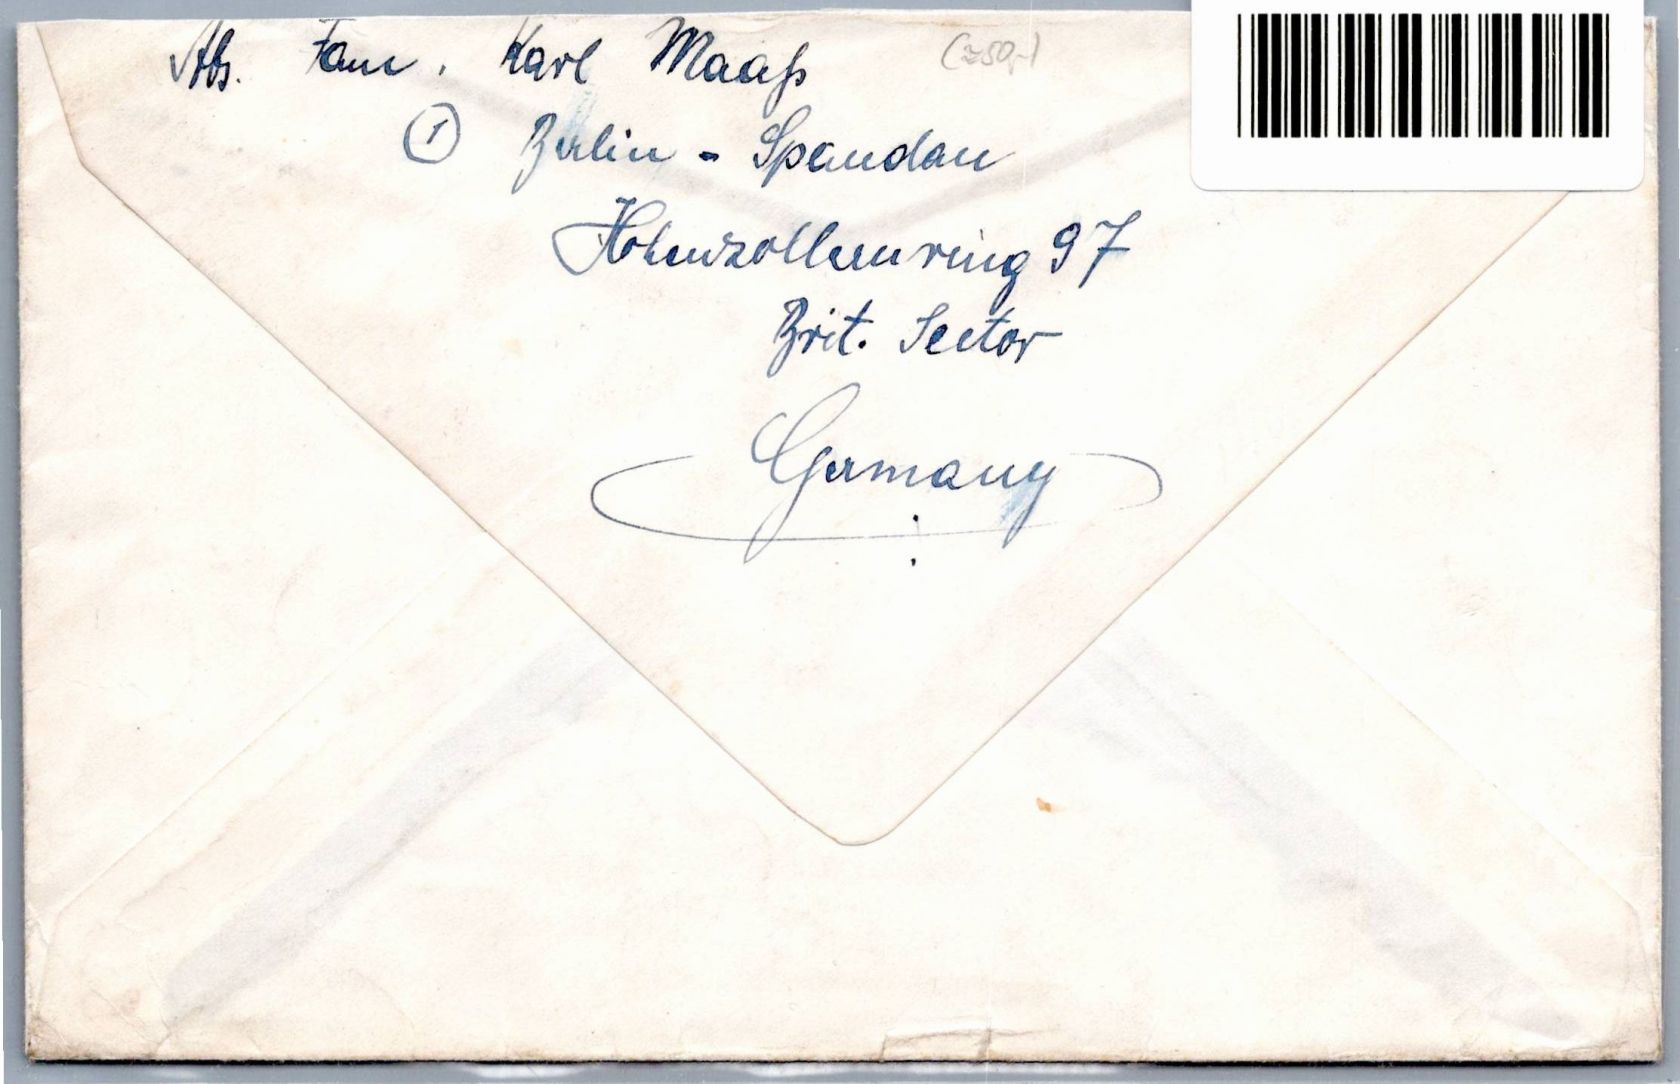 Abs. Fam. Karl Maaß
(≈50,-)
① Berlin - Spandau
Hohenzollernring 97
Brit. Sector
Germany